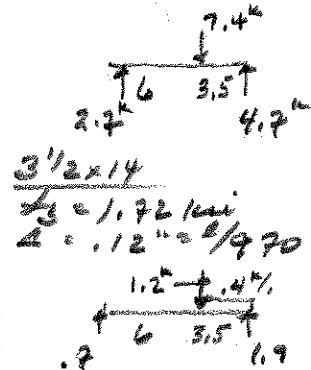 7.4k
6 3.5
2.7k 4.7k
3 1/2 x 14
= 1.72 ksi
Δ = .12" = l/970
1.2k .4k/'
6 3.5
.7 1.9